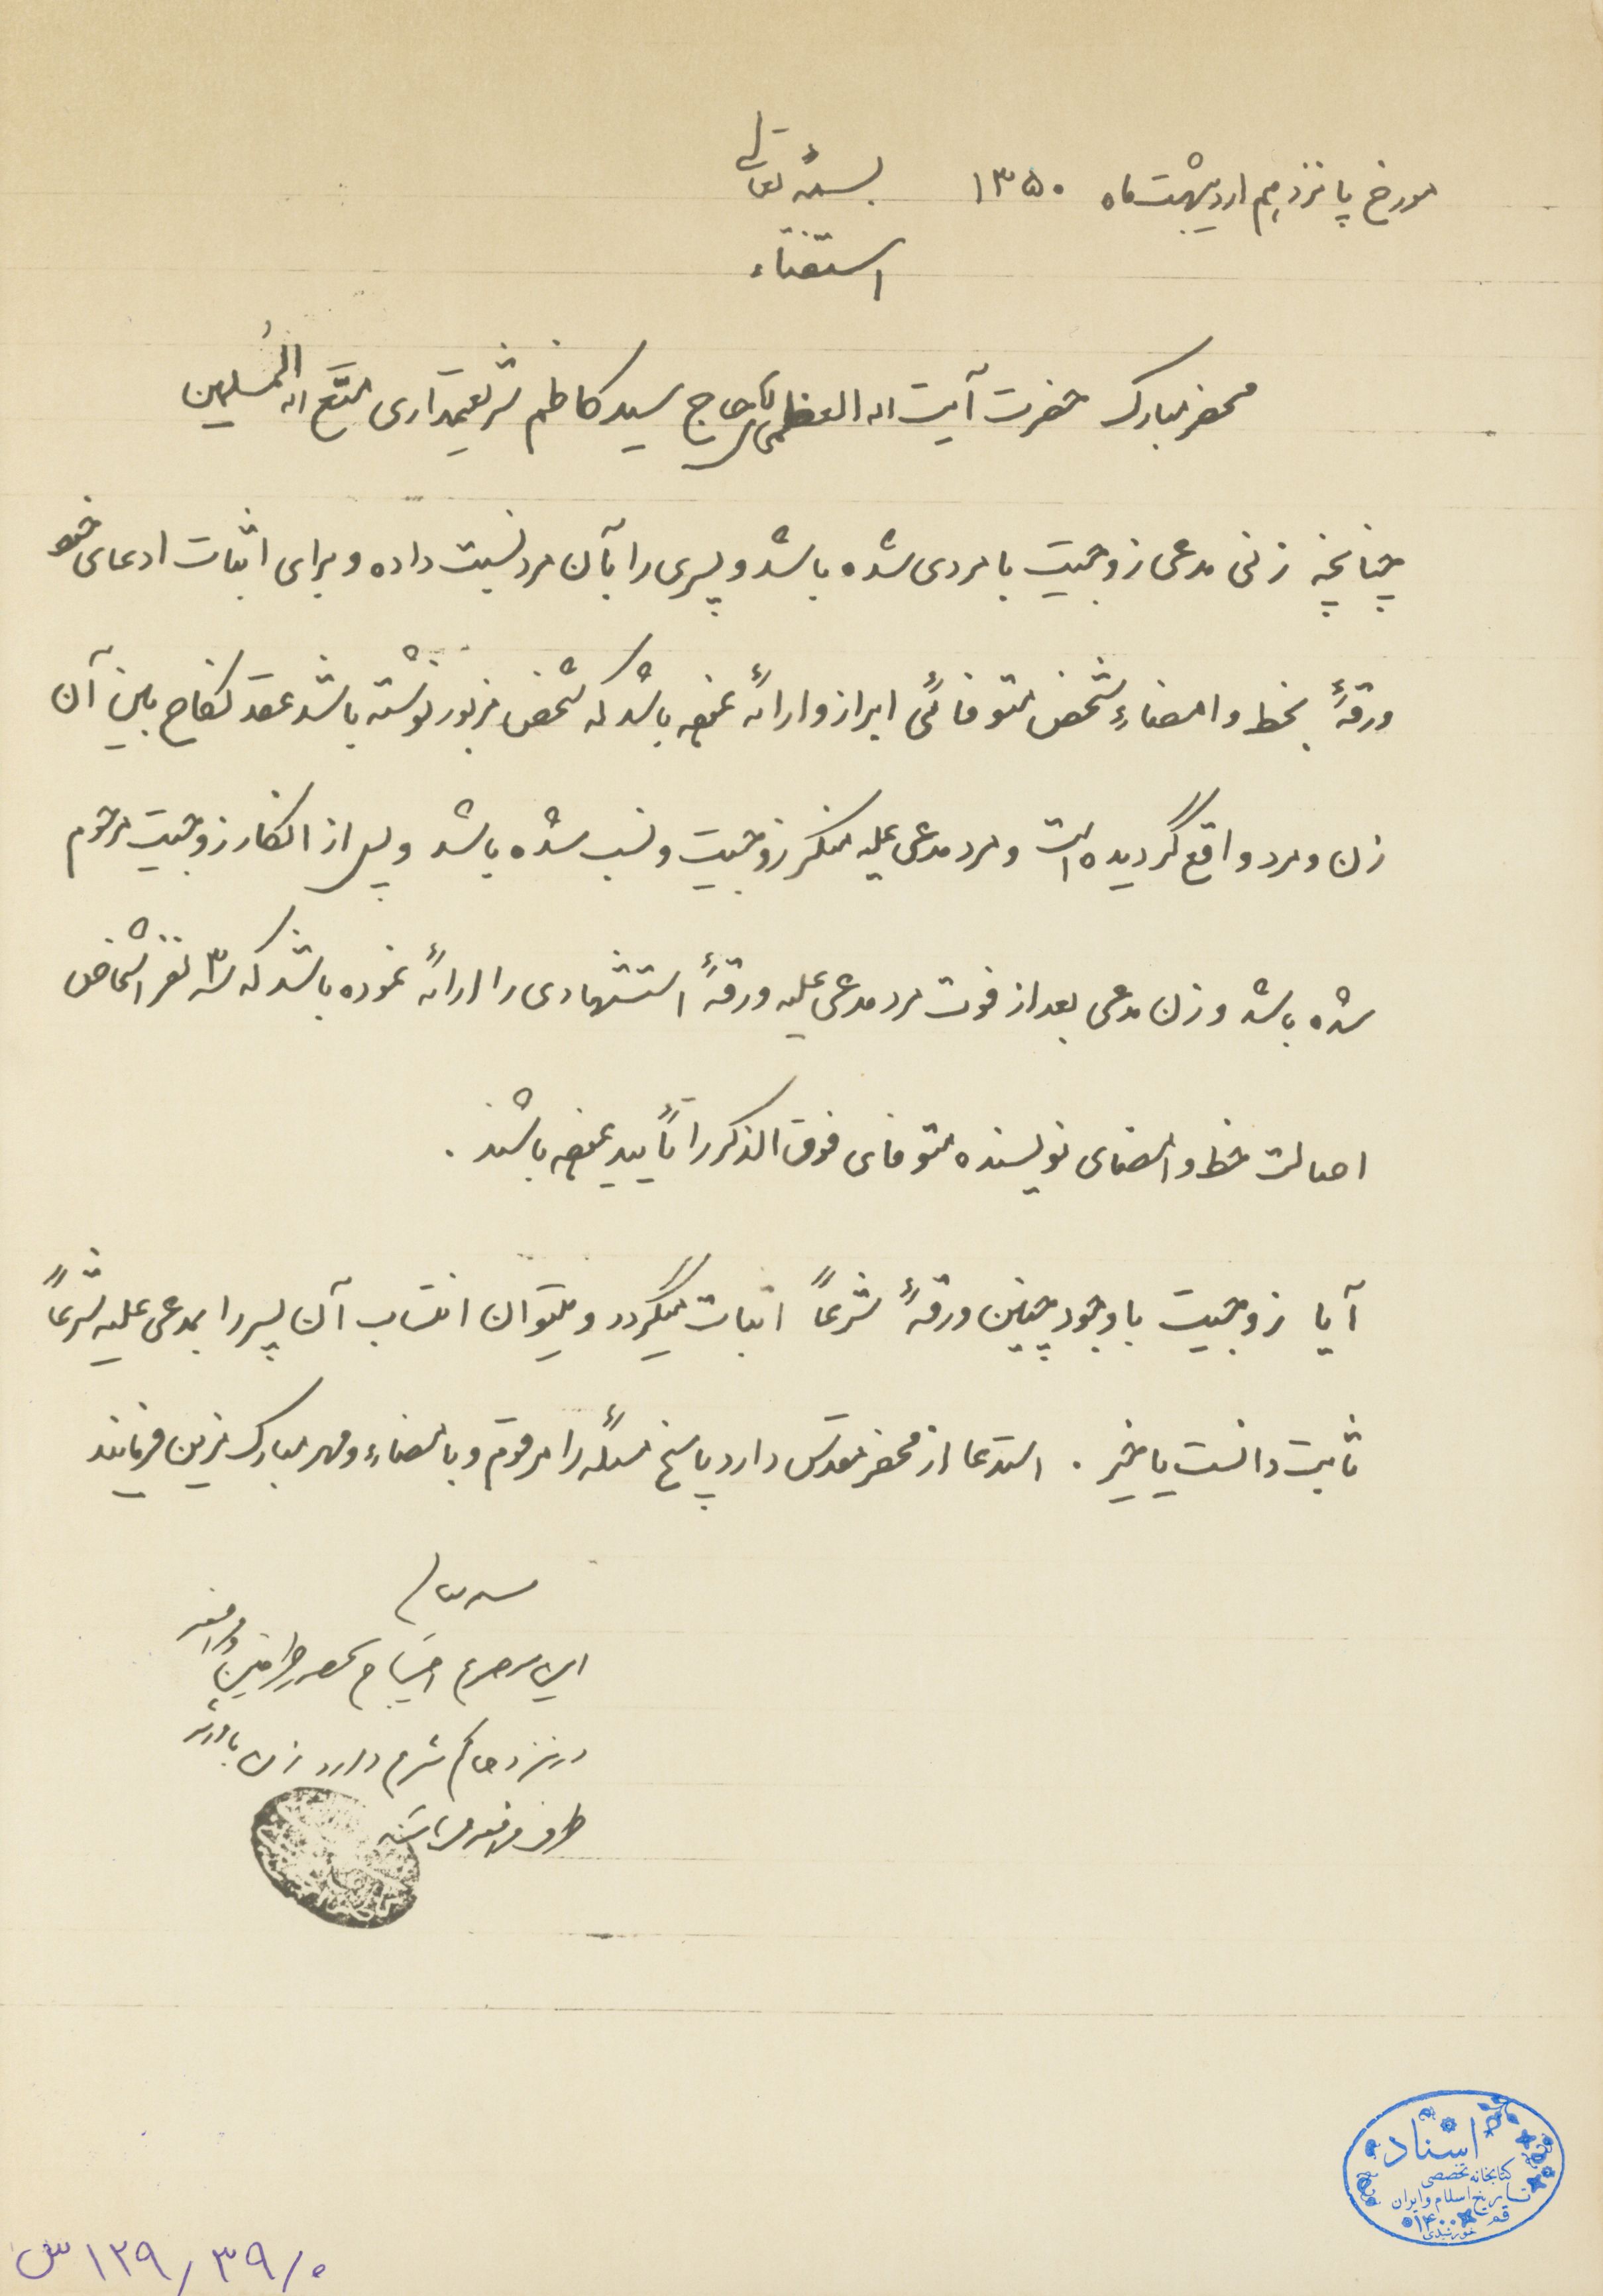 مورخ پانزدهم اردیبهشت ماه ۱۳۵۰ بسمه تعالی
استفتاء
محضر مبارک حضرت آیت اله العظمی آقای حاج سید کاظم شریعتمداری متّع اله المُسلمین
چنانچه زنی مدعی زوجیت با مردی شده باشد و پسری را بآن مرد نسبت داده و برای اثبات ادعای خود
ورقهٔ بخط و امضاء شخص متوفائی ابراز و ارائه نموده باشد که شخص مزبور نوشته باشد عقد نکاح بین آن
زن و مرد واقع گردیده است و مرد مدعی علیه منکر زوجیت و نسب شده باشد و پس از انکار زوجیت مرحوم
شده باشد و زن مدعی بعد از فوت مرد مدعی علیه ورقهٔ استشهادی را ارائه نموده باشد که سه نفر اشخاص
اصالت خط و امضای نویسنده متوفای فوق الذکر را تأیید نموده باشند .
آیا زوجیت با وجود چنین ورقهٔ شرعاً اثبات میگردد و میتوان انتساب آن پسر را بمدعی علیه شرعاً
ثابت دانست یا خیر . استدعا از محضر مقدس دارد پاسخ مسئله را مرقوم و با امضاء و مهر مبارک مزین فرمایند
بسمه تعالی
این موضوع احتیاج بحضور طرفین و مرافعه
در نزد حاکم شرع دارد زن با ورثه
طرف مرافعه میباشند
اسناد
کتابخانه تخصصی
تاریخ اسلام و ایران
قم
۱۴۰۰
۱۲۹/۳۹/۰ س